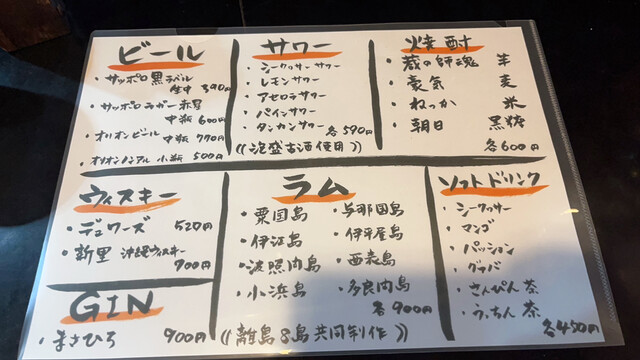 ビール
・サッポロ黒ラベル
生中 390円
・サッポロラガー赤星
中瓶 600円
・オリオンビール 中瓶 770円
・オリオンノンアル 小瓶 500円
サワー
・シークヮサーサワー
・レモンサワー
・アセロラサワー
・パインサワー
・タンカンサワー
各590円
((泡盛古酒使用))
焼酎
・蔵の師魂 芋
・豪気 麦
・ねっか 米
・朝日 黒糖
各600円
ウィスキー
・デュワーズ 520円
・新里 沖縄ウィスキー
900円
GIN
・まさひろ 900円
ラム
・粟国島 ・与那国島
・伊江島 ・伊平屋島
・波照間島 ・西表島
・小浜島 ・多良間島
各900円
((離島8島共同制作))
ソフトドリンク
・シークヮサー
・マンゴ
・パッション
・グァバ
・さんぴん茶
・うっちん茶
各450円